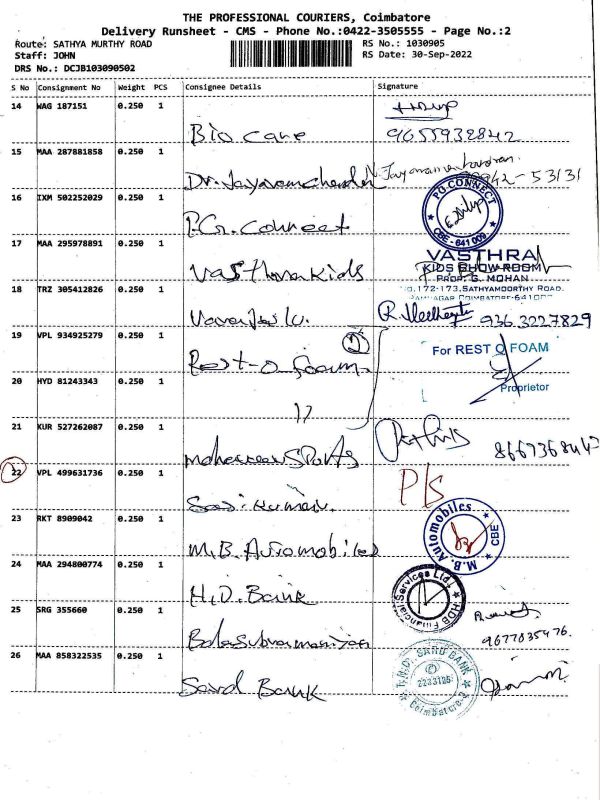 THE PROFESSIONAL COURIERS, Coimbatore
Delivery Runsheet - CMS - Phone No.:0422-3505555 - Page No.:2
Route: SATHYA MURTHY ROAD
RS No.: 1030905
Staff: JOHN
RS Date: 30-Sep-2022
DRS No.: DCJB103090502
S No Consignment No Weight PCS Consignee Details Signature
14 WAG 187151 0.250 1
Bio care 9655932842
15 MAA 287881858 0.250 1
Dr. Jayaramchander
N. Jayaramachandran
53131
16 IXM 502252029 0.250 1
P.G. Connect
P.G.CONNECT
CBE - 641 009
17 MAA 295978891 0.250 1
Vasthra Kids
VASTHRA
KIDS SHOW ROOM
PROP: G. MOHAN
NO.172-173, SATHYAMOORTHY ROAD.
RAMNAGAR COIMBATORE-641
18 TRZ 305412826 0.250 1
936 3227829
19 VPL 934925279 0.250 1
Rest-O-Foam
2
For REST O FOAM
Proprietor
20 HYD 81243343 0.250 1
21 KUR 527262087 0.250 1
Sports
22 VPL 499631736 0.250 1
Sasi Kumar
P/s
23 RKT 8909042 0.250 1
M.B. Automobiles
M.B. Automobiles
CBE
24 MAA 294800774 0.250 1
H.D. Bank
HDB Financial Services Ltd.
25 SRG 355660 0.250 1
Balasubramaniyan
9677035476
26 MAA 858322535 0.250 1
Sard Bank
SARD BANK
2233125
Coimbatore